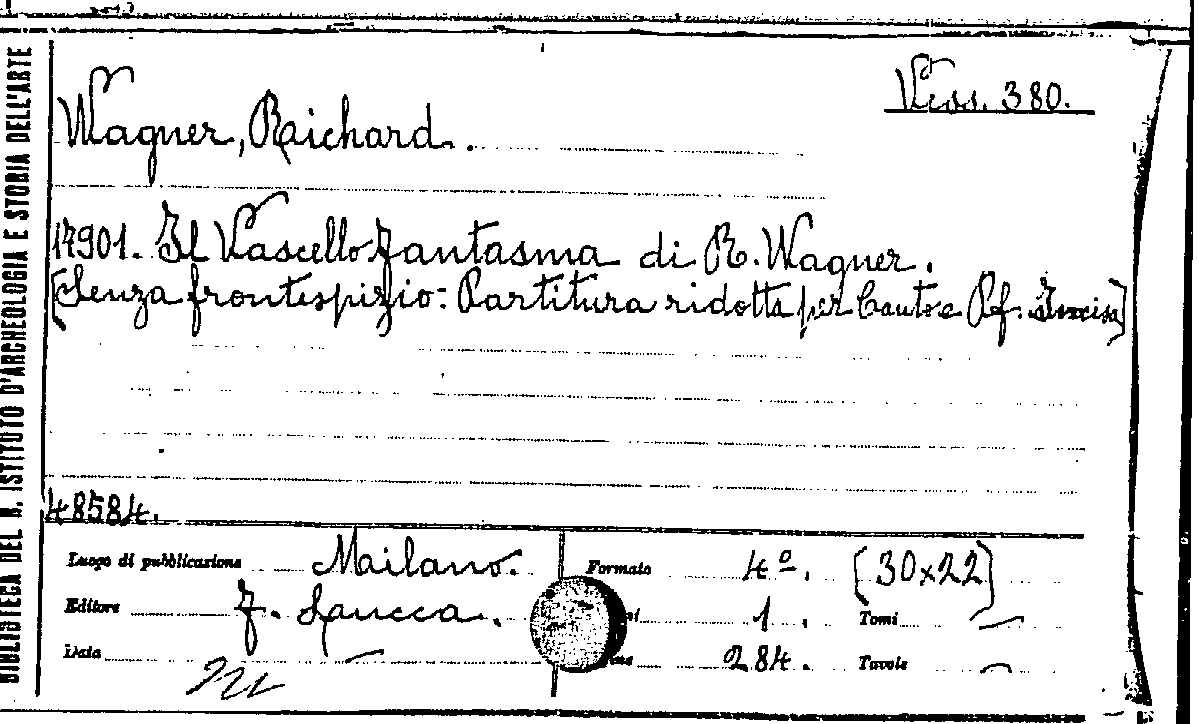 BIBLIOTECA DEL R. ISTITUTO D'ARCHEOLOGIA E STORIA DELL'ARTE
Vess. 380.
Wagner, Richard.
17901. Il Vascello Fantasma di R. Wagner.
[Senza frontespizio: Partitura ridotta per Canto e Pf. Incisa]
48584.
Luogo di pubblicazione Milano. Formato 4º. (30x22)
Editore F. Lucca. 1. Tomi —
Data — 284. Tavole —